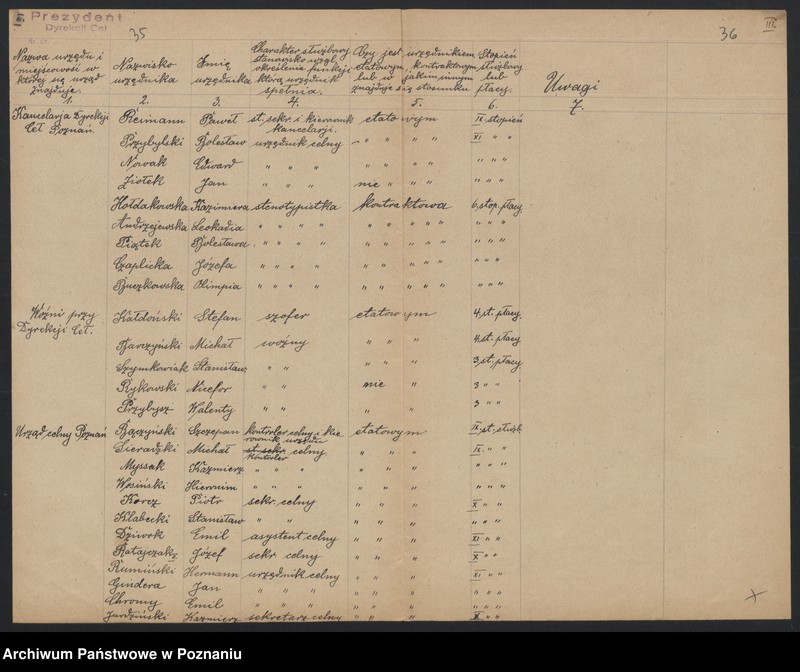 Prezydent
Dyrekcji Ceł
35
36
III
Nazwa urzędu i miejscowość w której się urząd znajduje.
Nazwisko urzędnika
Imię urzędnika
Charakter służbowy stanowisko wzgl. określenie funkcji którą urzędnik spełnia.
Czy jest urzędnikiem etatowym, kontraktowym lub w jakim innym znajduje się stosunku
Stopień służbowy lub płacy.
Uwagi
1. 2. 3. 4. 5. 6. 7.
Kancelarja Dyrekcji Ceł Poznań.
Reimann Paweł st. sekr. i kierownik kancelarji. etatowym IX stopień
Przybylski Bolesław urzędnik celny " " " " XI " "
Nowak Edward " " " " " " " " "
Ziółek Jan " " " nie " " " " " "
Hołdakowska Kazimiera stenotypistka kontraktowa 6 stop. płacy.
Andrzejewska Leokadja " " " " " " " " " " "
Piątek Bolesława " " " " " " " " " " "
Czaplicka Józefa " " " " " " " " " " "
Buczkowska Olimpia " " " " " " " " " " "
Woźni przy Dyrekcji Ceł.
Kałdoński Stefan szofer etatowym 4. st. płacy.
Barczyński Michał woźny " " " 4. st. płacy
Szymkowiak Stanisław " " " " 3. st. płacy
Rykowski Nicefor " " nie " 3 " "
Przybysz Walenty " " " " 3 " "
Urząd celny Poznań
Bączyński Szczepan kontroler celny i kierownik urzędu etatowym IX. st. służb.
Sieradzki Michał st. sekr. celny kontroler " " " IX. " "
Myssak Kazmierz " " " " " " " " "
Wosiński Hieronim " " " " " " " " "
Korcz Piotr sekr. celny " " " X " "
Klabecki Stanisław " " " " " " " "
Dziwok Emil asystent celny " " " XI " "
Ratajczak Józef sekr. celny " " " X " "
Rumiński Hermann urzędnik celny " " " XI " "
Gindera Jan " " " " " " " " "
Chromy Emil " " " " " " " " "
Jardziński Kazmierz sekretarz celny " " " X " "
Archiwum Państwowe w Poznaniu